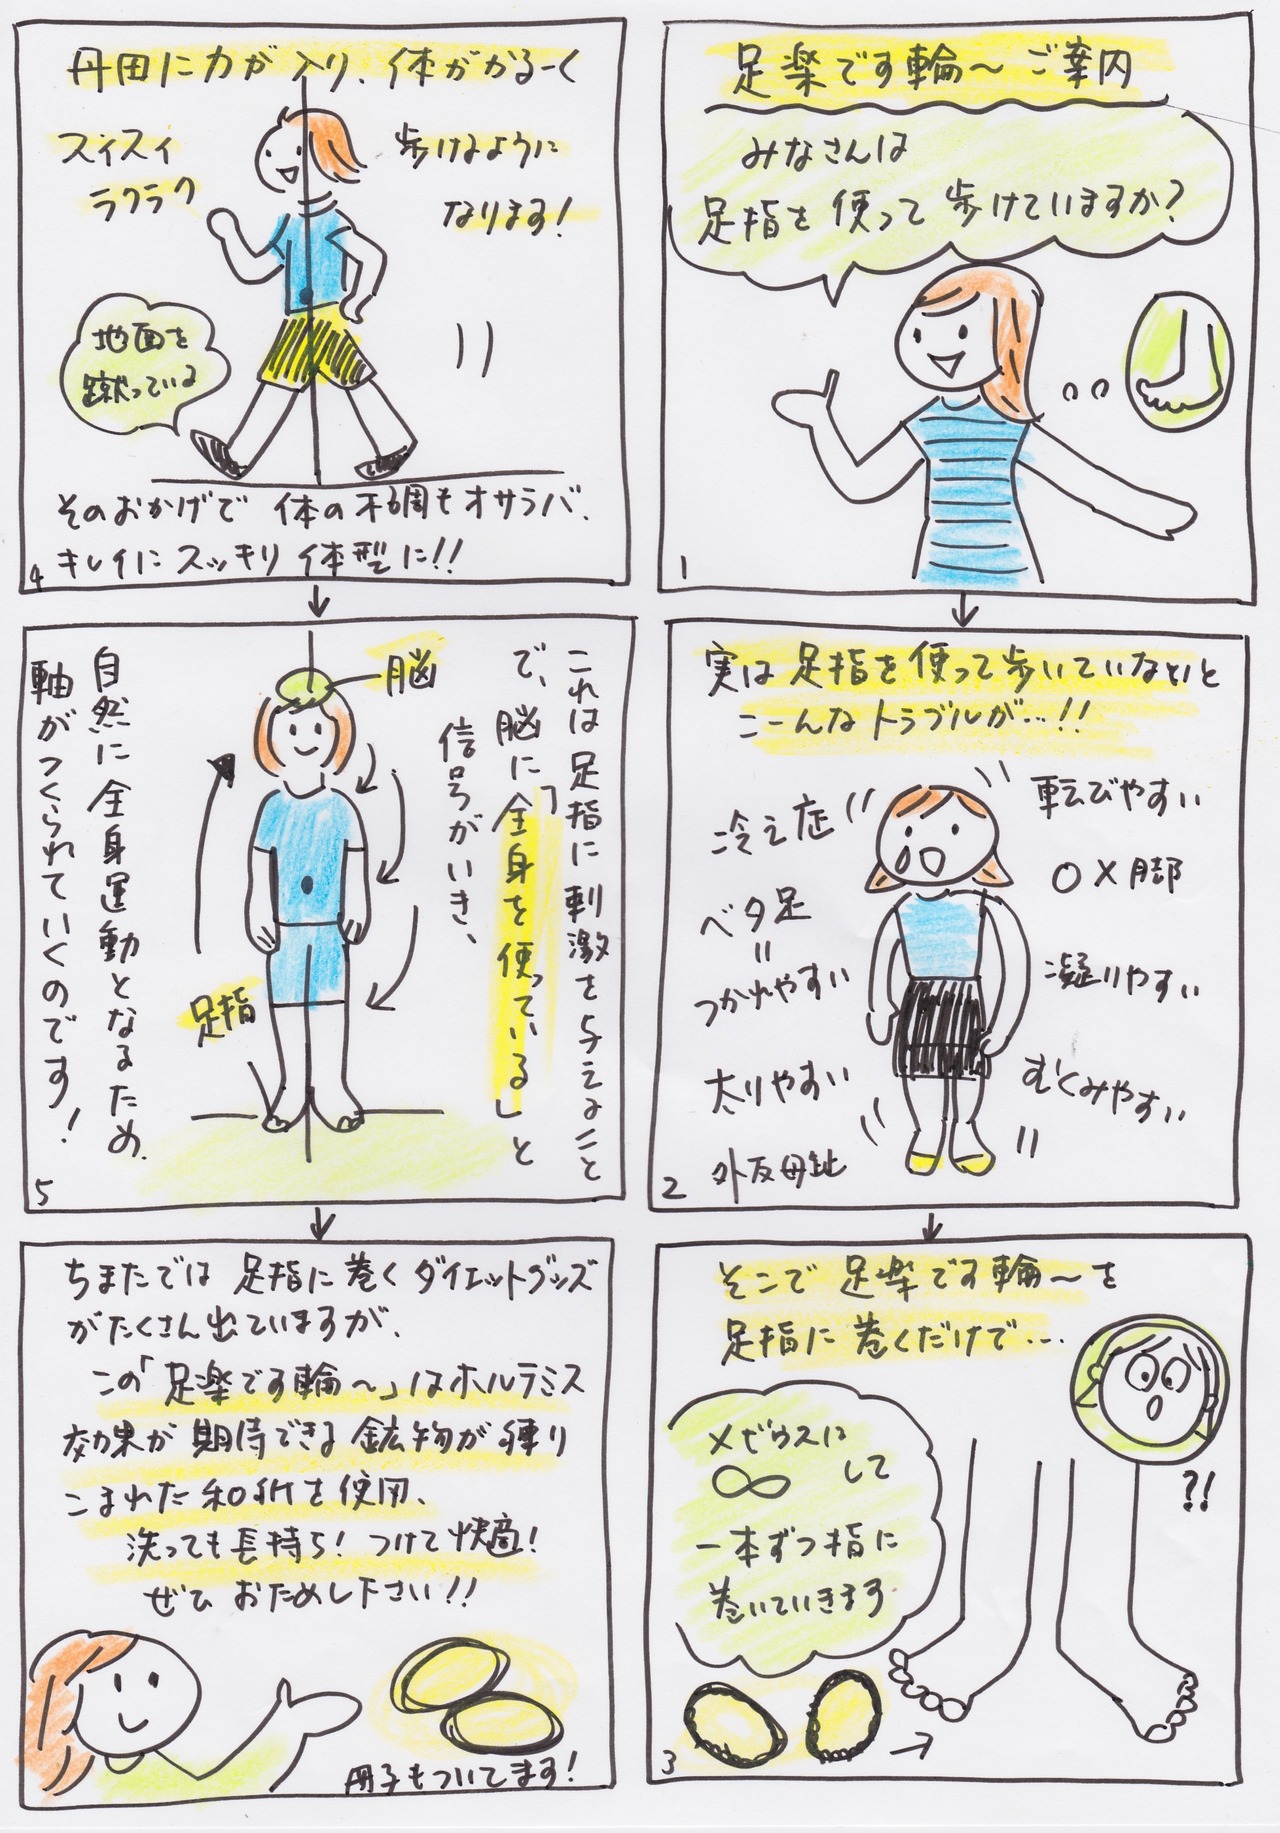 足楽です輪〜ご案内
みなさんは
足指を使って歩けていますか?
1
実は足指を使って歩いていないと
こーんなトラブルが…!!
冷え症
転びやすい
O×脚
ベタ足
=
つかれやすい
凝りやすい
太りやすい
むくみやすい
外反母趾
2
そこで足楽です輪〜を
足指に巻くだけで…
メビウスに
∞して
一本ずつ指に
巻いていきます
?!
3
丹田に力が入り、体がかるーく
スイスイ
ラクラク
歩けるように
なります!
地面を
蹴っている
そのおかげで体の不調もオサラバ、
キレイにスッキリ体型に!!
4
これは足指に刺激を与えること
で、脳に「全身を使っている」と
信号がいき、
脳
足指
自然に全身運動となるため、
軸がつくられていくのです!
5
ちまたでは足指に巻くダイエットグッズ
がたくさん出ていますが、
この「足楽です輪〜」はホルミシス
効果が期待できる鉱物が練り
こまれた和紙を使用、
洗っても長持ち!つけて快適!
ぜひおためし下さい!!
冊子もついてます!